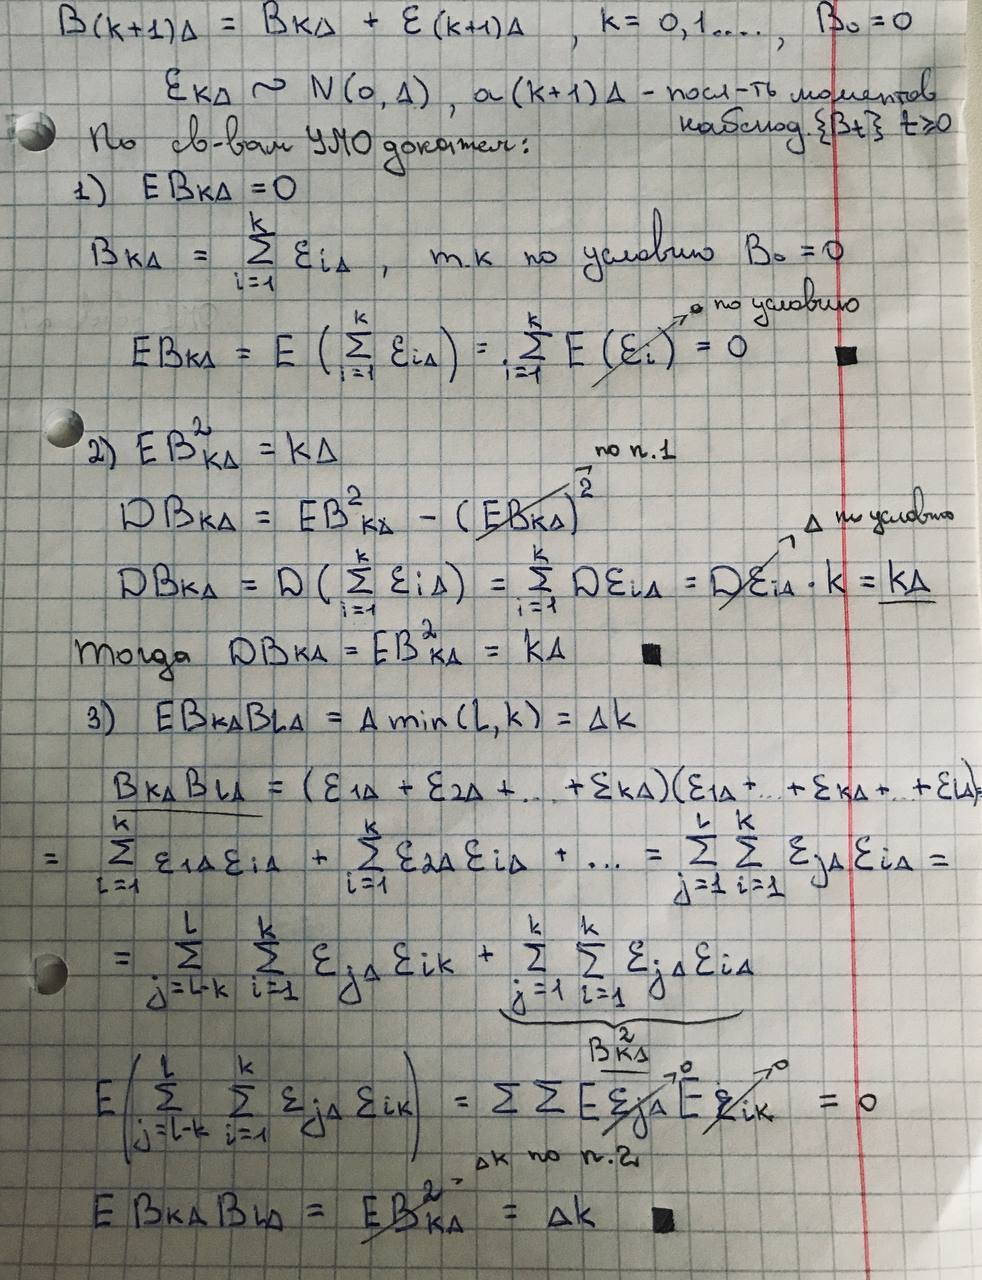 B(k+1)Δ = BkΔ + ε(k+1)Δ , k = 0,1...., B₀ = 0
εkΔ ~ N(0,Δ), а (k+1)Δ - посл-ть моментов
наблюд. {Bt} t≥0
По св-вам УМО докажем:
1) E BkΔ = 0
BkΔ = Σ_{i=1}^{k} εiΔ , т.к по условию B₀ = 0
EBkΔ = E (Σ_{i=1}^{k} εiΔ) = Σ_{i=1}^{k} E (εi) → 0 по условию = 0 ■
2) EB²kΔ = kΔ
DBkΔ = EB²kΔ - (EBkΔ)² по п.1
DBkΔ = D(Σ_{i=1}^{k} εiΔ) = Σ_{i=1}^{k} DεiΔ = DεiΔ → Δ по условию · k = kΔ
Тогда DBkΔ = EB²kΔ = kΔ ■
3) EBkΔBLΔ = Δ min(L,k) = Δk
BkΔBLΔ = (ε1Δ + ε2Δ +...+ εkΔ)(ε1Δ+...+εkΔ+..+εLΔ)=
= Σ_{i=1}^{k} ε1ΔεiΔ + Σ_{i=1}^{k} ε2ΔεiΔ + ... = Σ_{j=1}^{L} Σ_{i=1}^{k} εjΔεiΔ =
= Σ_{j=L-k}^{L} Σ_{i=1}^{k} εjΔεik + Σ_{j=1}^{k} Σ_{i=1}^{k} εjΔεiΔ
B²kΔ
E(Σ_{j=L-k}^{L} Σ_{i=1}^{k} εjΔεik) = ΣΣ EεjΔ → 0 Eεik → 0 = 0
Δk по п.2
E BkΔBLΔ = EB²kΔ = Δk ■